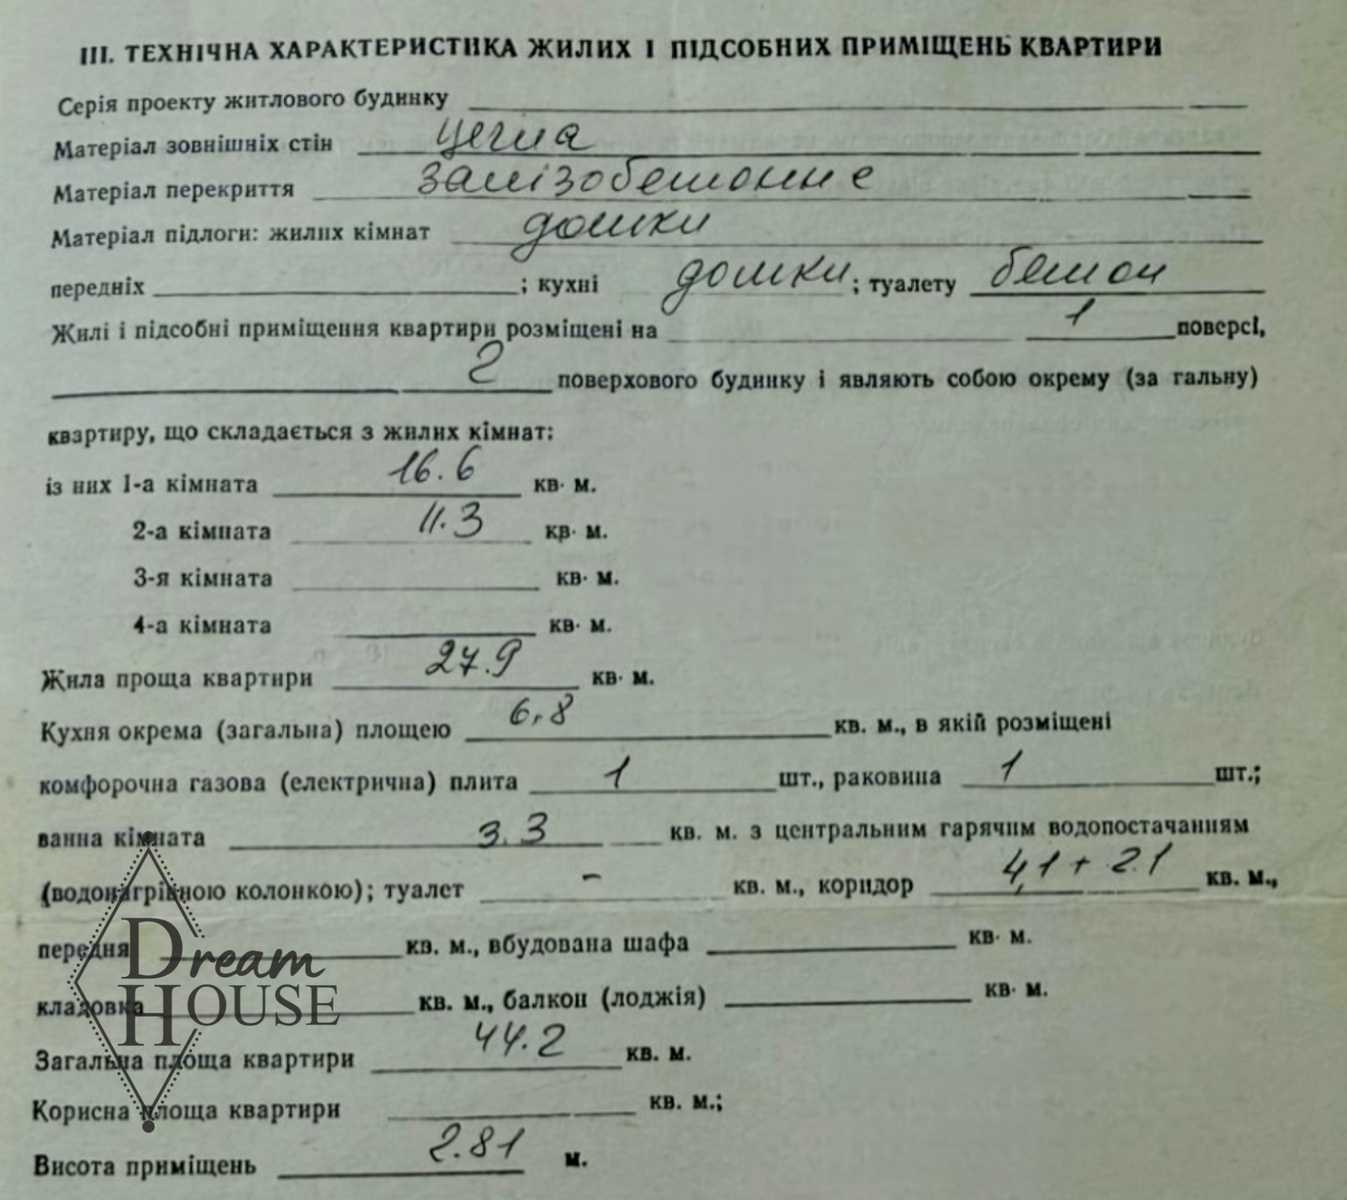 III. ТЕХНІЧНА ХАРАКТЕРИСТИКА ЖИЛИХ І ПІДСОБНИХ ПРИМІЩЕНЬ КВАРТИРИ
Серія проекту житлового будинку
Матеріал зовнішніх стін цегла
Матеріал перекриття залізобетонне
Матеріал підлоги: жилих кімнат дошки
передніх ; кухні дошки ; туалету бетон
Жилі і підсобні приміщення квартири розміщені на 1 поверсі,
2 поверхового будинку і являють собою окрему (за гальну)
квартиру, що складається з жилих кімнат:
із них 1-а кімната 16.6 кв. м.
2-а кімната 11.3 кв. м.
3-я кімната кв. м.
4-а кімната кв. м.
Жила проща квартири 27.9 кв. м.
Кухня окрема (загальна) площею 6,8 кв. м., в якій розміщені
комфорочна газова (електрична) плита 1 шт., раковина 1 шт.;
ванна кімната 3.3 кв. м. з центральним гарячим водопостачанням
(водонагрівною колонкою); туалет - кв. м., коридор 4,1 + 2.1 кв. м.,
передня кв. м., вбудована шафа кв. м.
кладовка кв. м., балкон (лоджія) кв. м.
Dream
House
Загальна площа квартири 44.2 кв. м.
Корисна площа квартири кв. м.;
Висота приміщень 2.81 м.